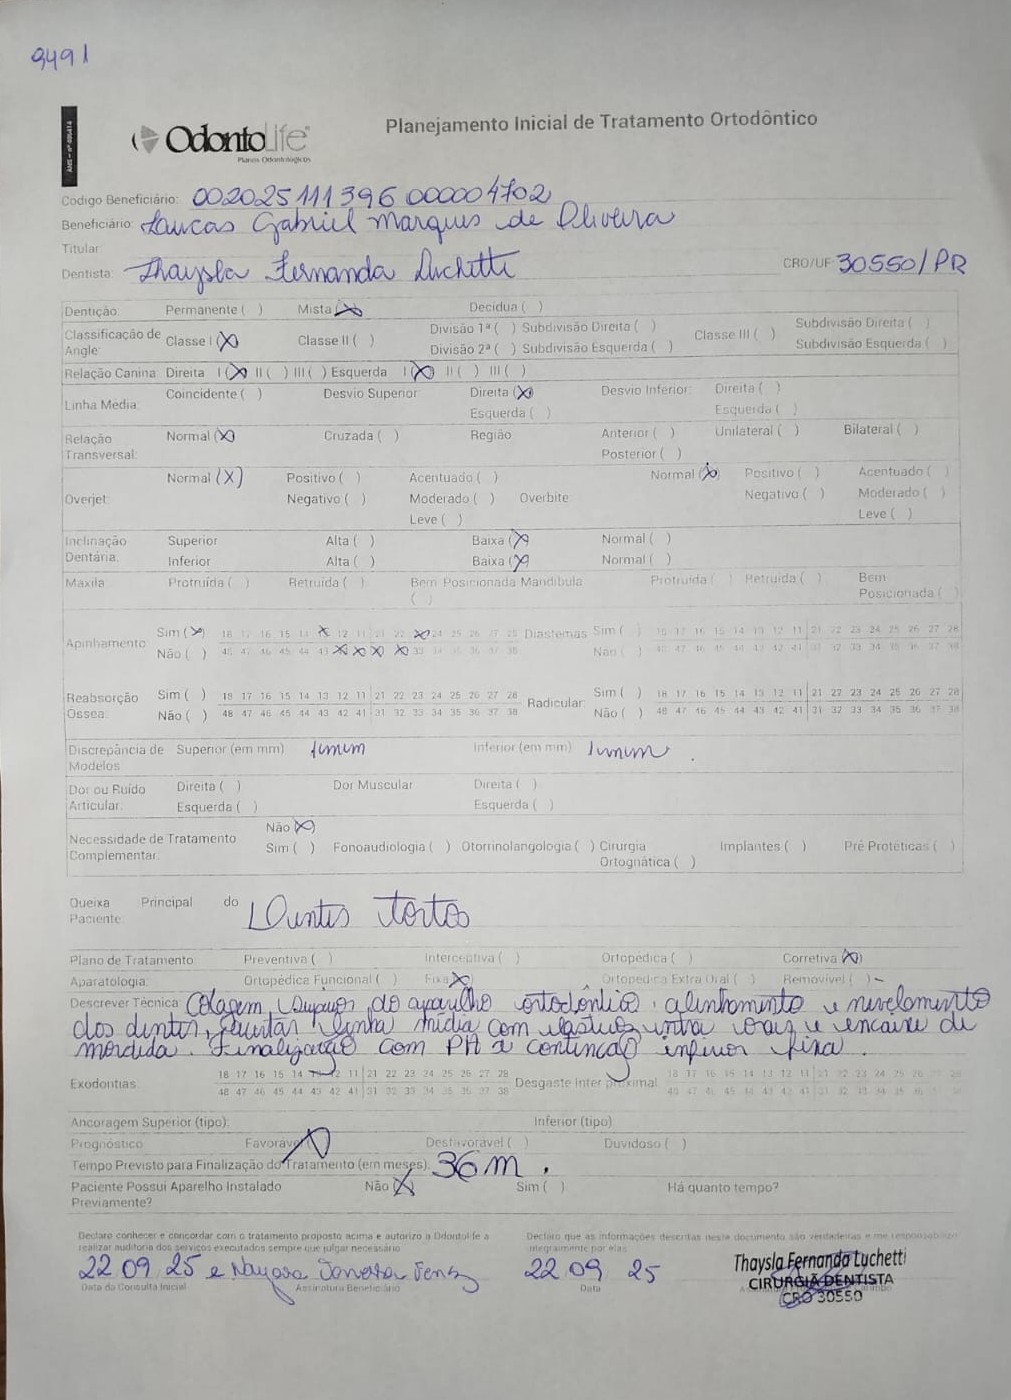 9491
ANS - nº
OdontoLife
Planos Odontológicos
Planejamento Inicial de Tratamento Ortodôntico
Código Beneficiário: 002025111396000004702
Beneficiário: Lucas Gabriel Marques de Oliveira
Titular
Dentista: Thaysla Fernanda Luchetti CRO/UF: 30550/PR
Dentição: Permanente ( ) Mista (X) Decídua ( )
Classificação de Angle: Classe I (X) Classe II ( ) Divisão 1ª ( ) Subdivisão Direita ( ) Classe III ( ) Subdivisão Direita ( )
Divisão 2ª ( ) Subdivisão Esquerda ( ) Subdivisão Esquerda ( )
Relação Canina: Direita I (X) II ( ) III ( ) Esquerda I (X) II ( ) III ( )
Linha Média: Coincidente ( ) Desvio Superior Direita (X) Desvio Inferior: Direita ( )
Esquerda ( ) Esquerda ( )
Relação Transversal: Normal (X) Cruzada ( ) Região Anterior ( ) Unilateral ( ) Bilateral ( )
Posterior ( )
Normal (X) Positivo ( ) Acentuado ( ) Normal (X) Positivo ( ) Acentuado ( )
Overjet: Negativo ( ) Moderado ( ) Overbite Negativo ( ) Moderado ( )
Leve ( ) Leve ( )
Inclinação Superior Alta ( ) Baixa (X) Normal ( )
Dentária: Inferior Alta ( ) Baixa (X) Normal ( )
Maxila Protruída ( ) Retruída ( ) Bem Posicionada ( ) Mandíbula Protruída ( ) Retruída ( ) Bem Posicionada ( )
Apinhamento Sim (X) 18 17 16 15 14 X 12 11 21 22 X 24 25 26 27 28 Diastemas Sim ( ) 18 17 16 15 14 13 12 11 21 22 23 24 25 26 27 28
Não ( ) 48 47 46 45 44 43 X X X X 33 34 35 36 37 38 Não ( ) 48 47 46 45 44 43 42 41 31 32 33 34 35 36 37 38
Reabsorção Óssea: Sim ( ) 18 17 16 15 14 13 12 11 21 22 23 24 25 26 27 28 Radicular: Sim ( ) 18 17 16 15 14 13 12 11 21 22 23 24 25 26 27 28
Não ( ) 48 47 46 45 44 43 42 41 31 32 33 34 35 36 37 38 Não ( ) 48 47 46 45 44 43 42 41 31 32 33 34 35 36 37 38
Discrepância de Modelos Superior (em mm) 1mm Inferior (em mm) 1mm.
Dor ou Ruído Articular: Direita ( ) Dor Muscular Direita ( )
Esquerda ( ) Esquerda ( )
Necessidade de Tratamento Complementar: Não (X)
Sim ( ) Fonoaudiologia ( ) Otorrinolangologia ( ) Cirurgia Ortognática ( ) Implantes ( ) Pré Protéticas ( )
Queixa Principal do Paciente: Dentes Tortos
Plano de Tratamento: Preventiva ( ) Interceptiva ( ) Ortopédica ( ) Corretiva (X)
Aparatologia: Ortopédica Funcional ( ) Fixa (X) Ortopédica Extra Oral ( ) Removível ( )
Descrever Técnica: Colagem Superior do aparelho ortodôntico. alinhamento e nivelamento
dos dentes, linha média com intra orais e encaixe de
mordida. Finalização com e contenção inferior fixa.
Exodontias 18 17 16 15 14 13 12 11 21 22 23 24 25 26 27 28 Desgaste Inter proximal 18 17 16 15 14 13 12 11 21 22 23 24 25 26 27 28
48 47 46 45 44 43 42 41 31 32 33 34 35 36 37 38 48 47 46 45 44 43 42 41 31 32 33 34 35 36 37 38
Ancoragem Superior (tipo): Inferior (tipo)
Prognóstico Favorável (X) Desfavorável ( ) Duvidoso ( )
Tempo Previsto para Finalização do Tratamento (em meses): 36 m.
Paciente Possui Aparelho Instalado Previamente? Não (X) Sim ( ) Há quanto tempo?
Declaro conhecer e concordar com o tratamento proposto acima e autorizo a Odontolife a realizar auditoria dos serviços executados sempre que julgar necessário
Declaro que as informações descritas neste documento são verdadeiras e me responsabilizo integralmente por elas
22 09 25 Nayara 22 09 25
Data da Consulta Inicial Assinatura Beneficiário Data
Thaysla Fernanda Luchetti
CIRURGIÃ DENTISTA
CRO 30550